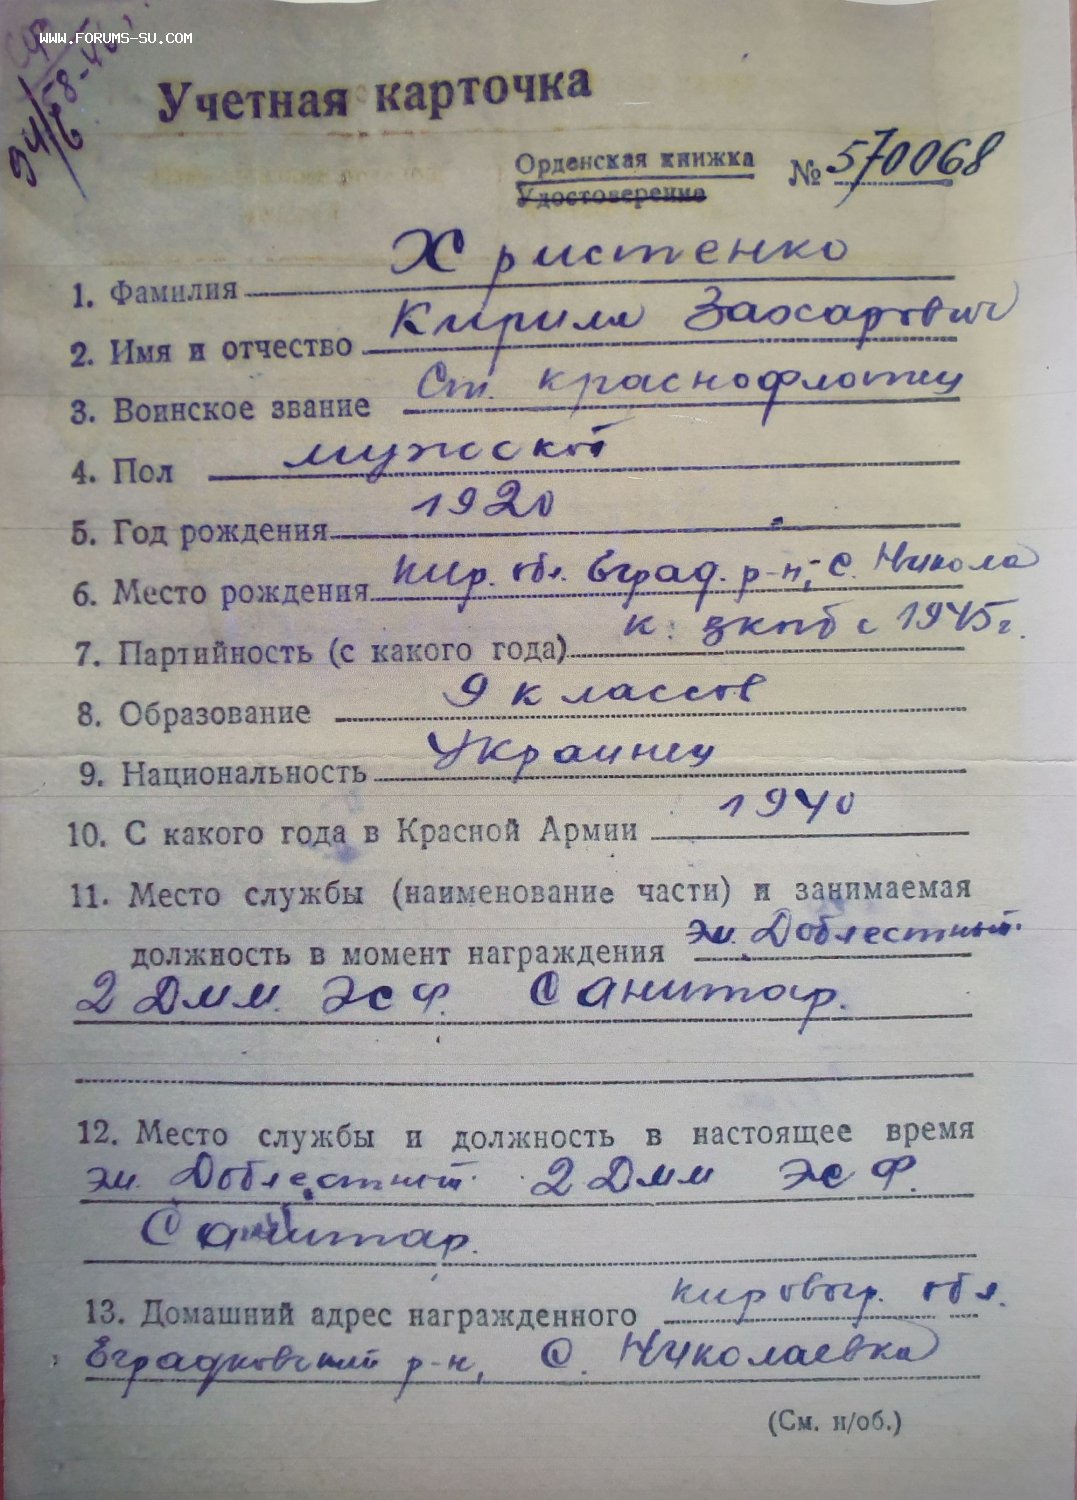 www.forums-su.com
94/6
Учетная карточка
Орденская книжка № 570068
Удостоверение
1. Фамилия Христенко
2. Имя и отчество Кирилл Захарович
3. Воинское звание Ст. краснофлотец
4. Пол мужской
5. Год рождения 1920
6. Место рождения Кир. обл. Еград. р-н, с. Никола
7. Партийность (с какого года) к. вкпб с 1945г.
8. Образование 9 классов
9. Национальность Украинец
10. С какого года в Красной Армии 1940
11. Место службы (наименование части) и занимаемая
должность в момент награждения эм. Доблестный.
2 ДММ. ЭСФ. Санитар.
12. Место службы и должность в настоящее время
эм. Доблестный. 2 ДММ ЭСФ.
Санитар.
13. Домашний адрес награжденного Кировогр. обл.
Еградковский р-н, с. Николаевка
(См. н/об.)